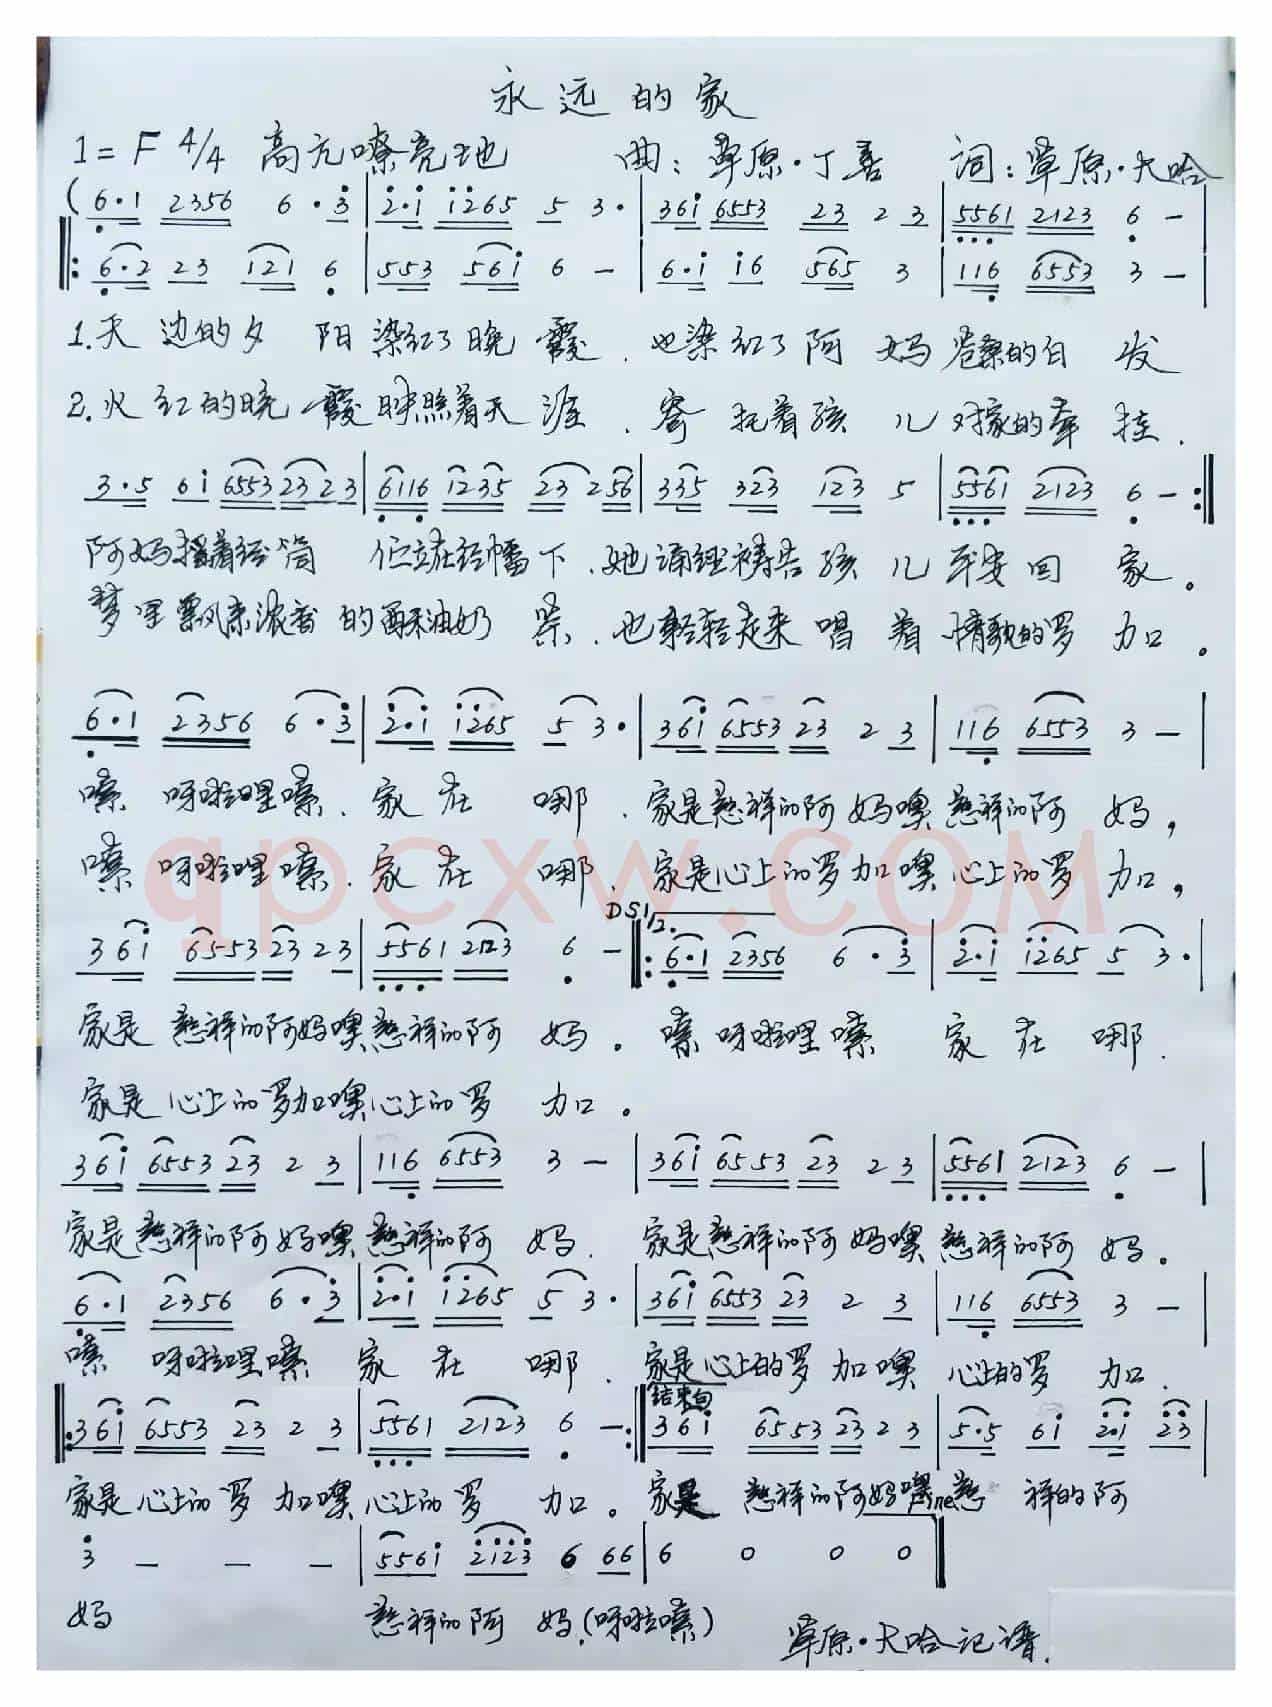 永远的家
1=F 4/4 高亢嘹亮地 曲:草原·丁喜 词:草原·大哈
(6·1 2356 6·3 | 2·1 1265 5 3· | 361 6553 23 2 3 | 5561 2123 6 -
6·2 23 121 6 | 553 561 6 - | 6·1 16 565 3 | 116 6553 3 -
1.天边的夕阳染红了晚霞.也染红了阿妈苍桑的白发
2.火红的晚霞映照着天涯.寄托着孩儿对家的牵挂.
3·5 61 6553 23 2 3 | 6116 1235 23 256 | 335 323 123 5 | 5561 2123 6 - :||
阿妈摇着经筒 伫立在经幡下.她诵经祷告孩儿平安回家。
梦里飘来浓香的酥油奶茶.也轻轻走来唱着情歌的罗加。
6·1 2356 6·3 | 2·1 1265 5 3· | 361 6553 23 2 3 | 116 6553 3 -
嗦呀啦哩嗦.家在哪.家是慈祥的阿妈噢慈祥的阿妈,
嗦呀啦哩嗦.家在哪.家是心上的罗加噢心上的罗加,
qpcxw.com
DS1/2.
361 6553 23 2 3 | 5561 2123 6 - ||: 6·1 2356 6·3 | 2·1 1265 5 3·
家是慈祥的阿妈噢慈祥的阿妈。嗦呀啦哩嗦 家在哪.
家是心上的罗加噢心上的罗加。
361 6553 23 2 3 | 116 6553 3 - | 361 6553 23 2 3 | 5561 2123 6 -
家是慈祥的阿妈噢慈祥的阿妈.家是慈祥的阿妈噢慈祥的阿妈。
6·1 2356 6·3 | 2·1 1265 5 3· | 361 6553 23 2 3 | 116 6553 3 -
嗦呀啦哩嗦 家在哪.家是心上的罗加噢心上的罗加.
结束句
||: 361 6553 23 2 3 | 5561 2123 6 - :|| 361 6553 23 2 3 | 5·5 61 2·1 23
家是心上的罗加噢心上的罗加。家是慈祥的阿妈噢慈祥的阿
Fine
3 - - - | 5561 2123 6 66 | 6 0 0 0
妈 慈祥的阿妈.(呀啦嗦)
草原·大哈记谱.